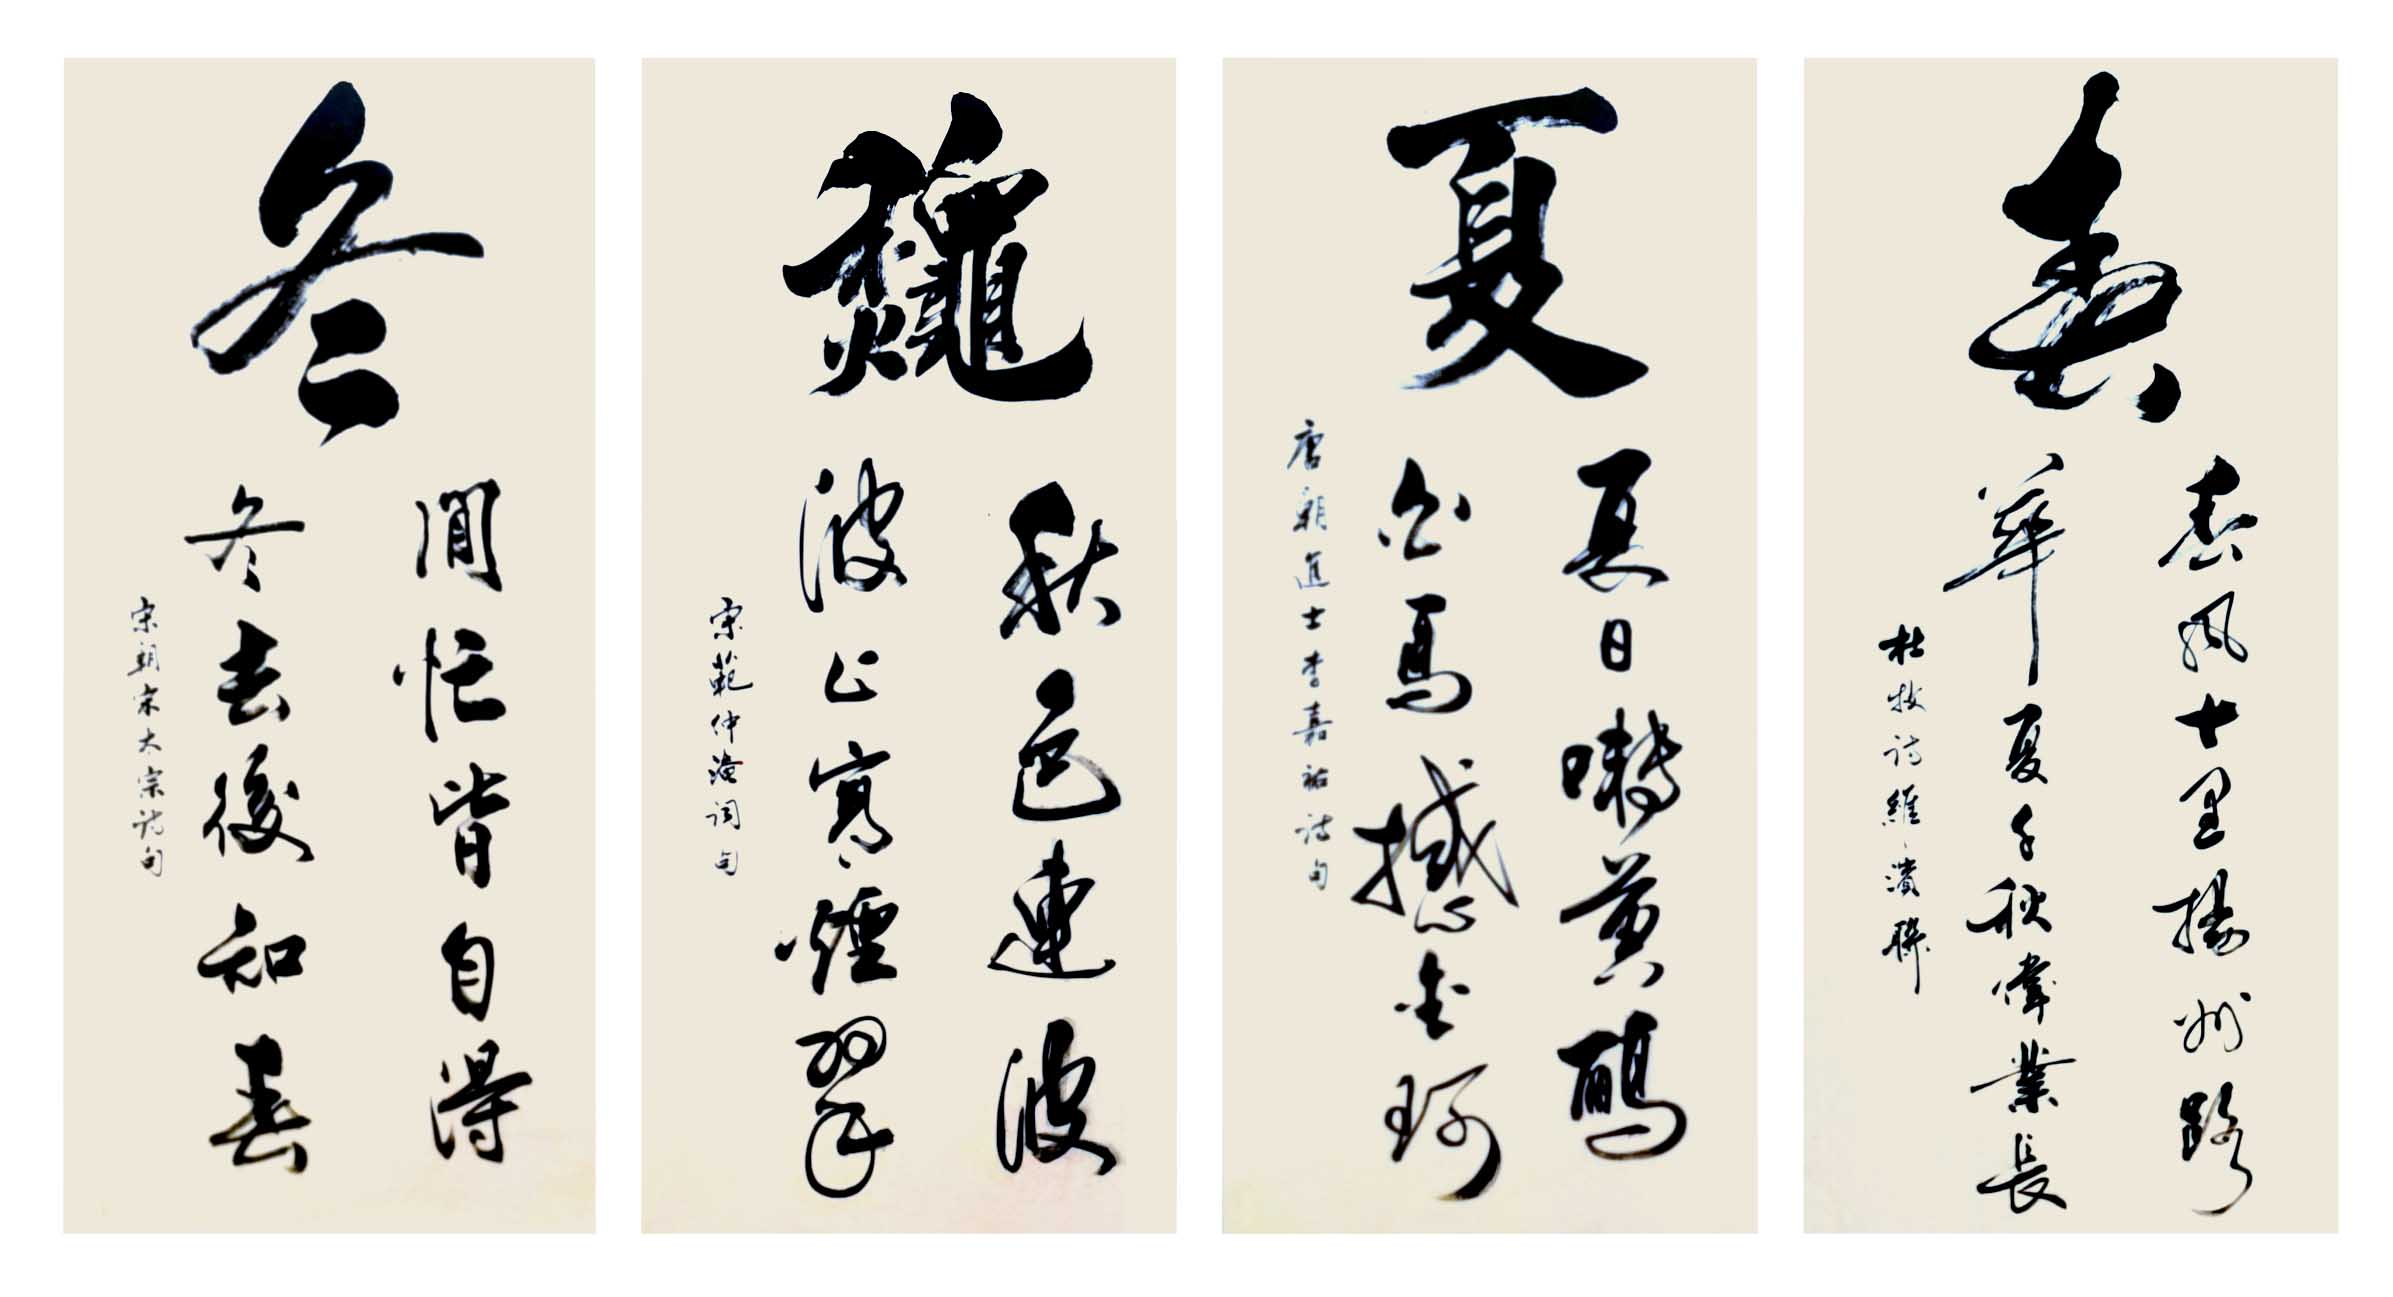 春
春風十里揚州路
華夏千秋偉業長
杜牧詩維濱聯
夏
夏日囀黃鸝
白馬撼金珂
唐朝進士李嘉祐詩句
𥤛
秋色連波
波上寒煙翠
宋範仲淹詞句
冬
閒忙皆自得
冬去後知春
宋朝宋太宗詩句